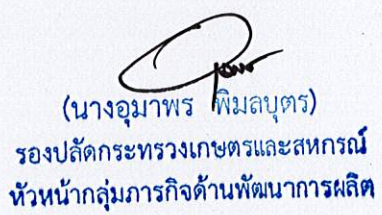 (นางอุมาพร พิมลบุตร)
รองปลัดกระทรวงเกษตรและสหกรณ์
หัวหน้ากลุ่มภารกิจด้านพัฒนาการผลิต